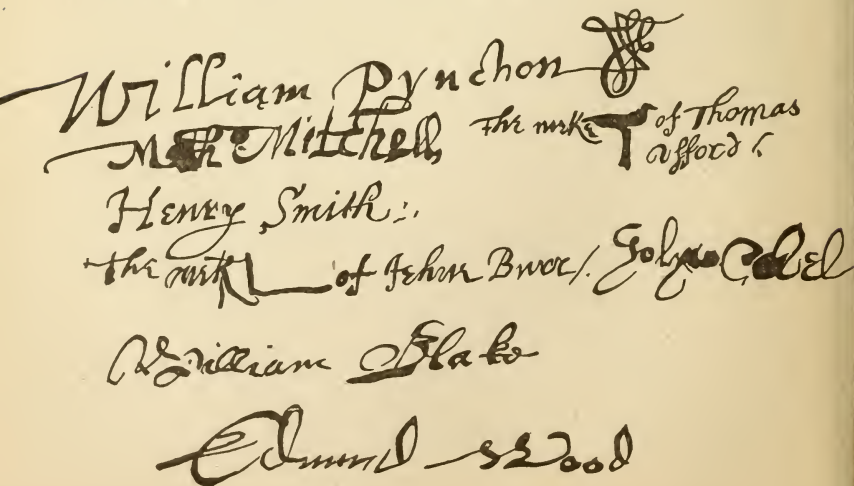 William Pynchon
Math Mitchell
The mrke T of Thomas
ufford
Henry Smith:.
The mrk of Jehue Burr/. John Cabel
William Blake
Edmund Wood